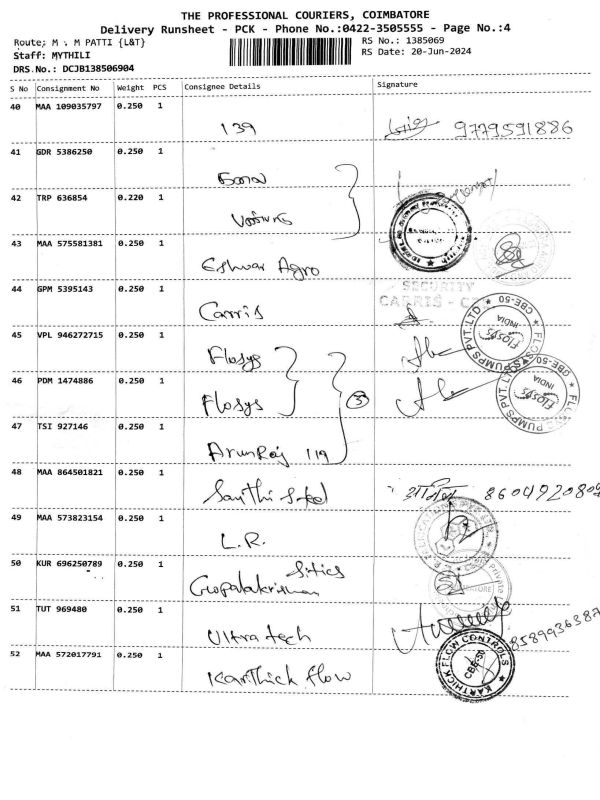 THE PROFESSIONAL COURIERS, COIMBATORE
Delivery Runsheet - PCK - Phone No.:0422-3505555 - Page No.:4
Route: M . M PATTI {L&T}
RS No.: 1385069
Staff: MYTHILI
RS Date: 20-Jun-2024
DRS No.: DCJB138506904
S No Consignment No Weight PCS Consignee Details Signature
40 MAA 109035797 0.250 1
139 9779591886
41 GDR 5386250 0.250 1
42 TRP 636854 0.220 1
43 MAA 575581381 0.250 1
Eshwar Agro
44 GPM 5395143 0.250 1
SECURITY
Carris CARRIS -
45 VPL 946272715 0.250 1
Flosys
FLOSYS PUMPS PVT.LTD CBE-50 INDIA Flosys
46 PDM 1474886 0.250 1
Flosys 3
FLOSYS PUMPS PVT.LTD CBE-50 INDIA Flosys
47 TSI 927146 0.250 1
ArunRaj 119
48 MAA 864501821 0.250 1
Santhi Steel
49 MAA 573823154 0.250 1
L.R.
50 KUR 696250789 0.250 1
Gopalakrisnan
51 TUT 969480 0.250 1
Ultra tech 8589936387
52 MAA 572017791 0.250 1
Karthick flow
KARTHICK FLOW CONTROLS CBE-50